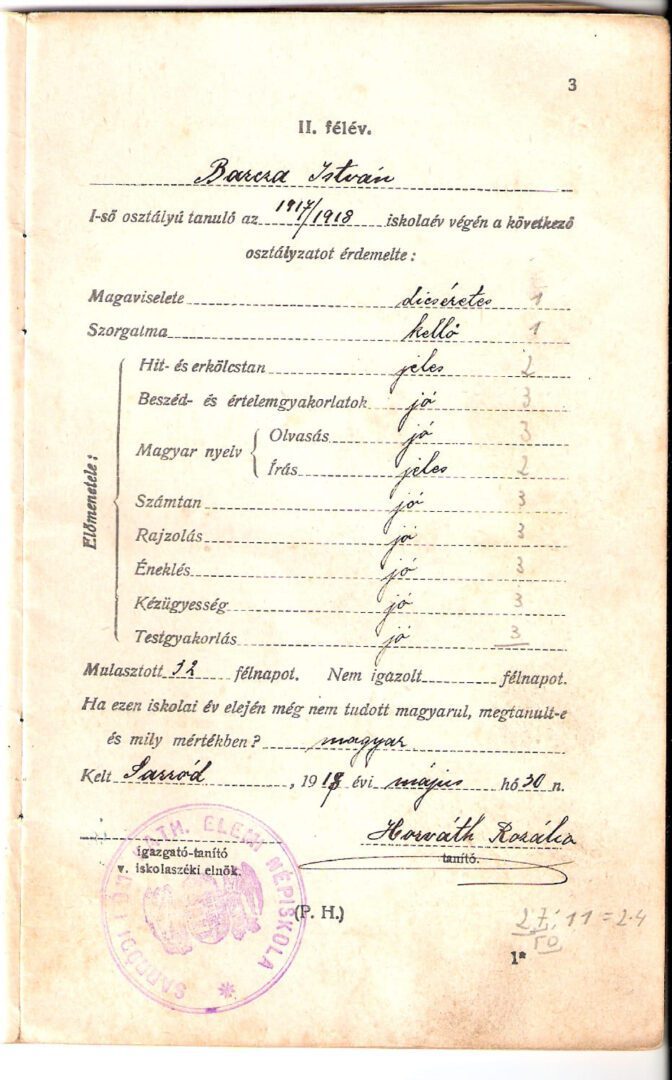 3
II. félév.
Barcza István
I-ső osztályú tanuló az 1917/1918 iskolaév végén a következő
osztályzatot érdemelte:
Magaviselete dicséretes 1
Szorgalma kellő 1
Előmenetele:
Hit- és erkölcstan jeles 2
Beszéd- és értelemgyakorlatok jó 3
Magyar nyelv
Olvasás jó 3
Írás jeles 2
Számtan jó 3
Rajzolás jó 3
Éneklés jó 3
Kézügyesség jó 3
Testgyakorlás jó 3
Mulasztott 32 félnapot. Nem igazolt félnapot.
Ha ezen iskolai év elején még nem tudott magyarul, megtanult-e
és mily mértékben? magyar
Kelt Sarród, 1918 évi május hó 30 n.
Horváth Rozália
igazgató-tanító
v. iskolaszéki elnök.
tanító.
SARRÓDI RÓM. KATH. ELEMI NÉPISKOLA
(P. H.)
27:11=2.4
50
1*